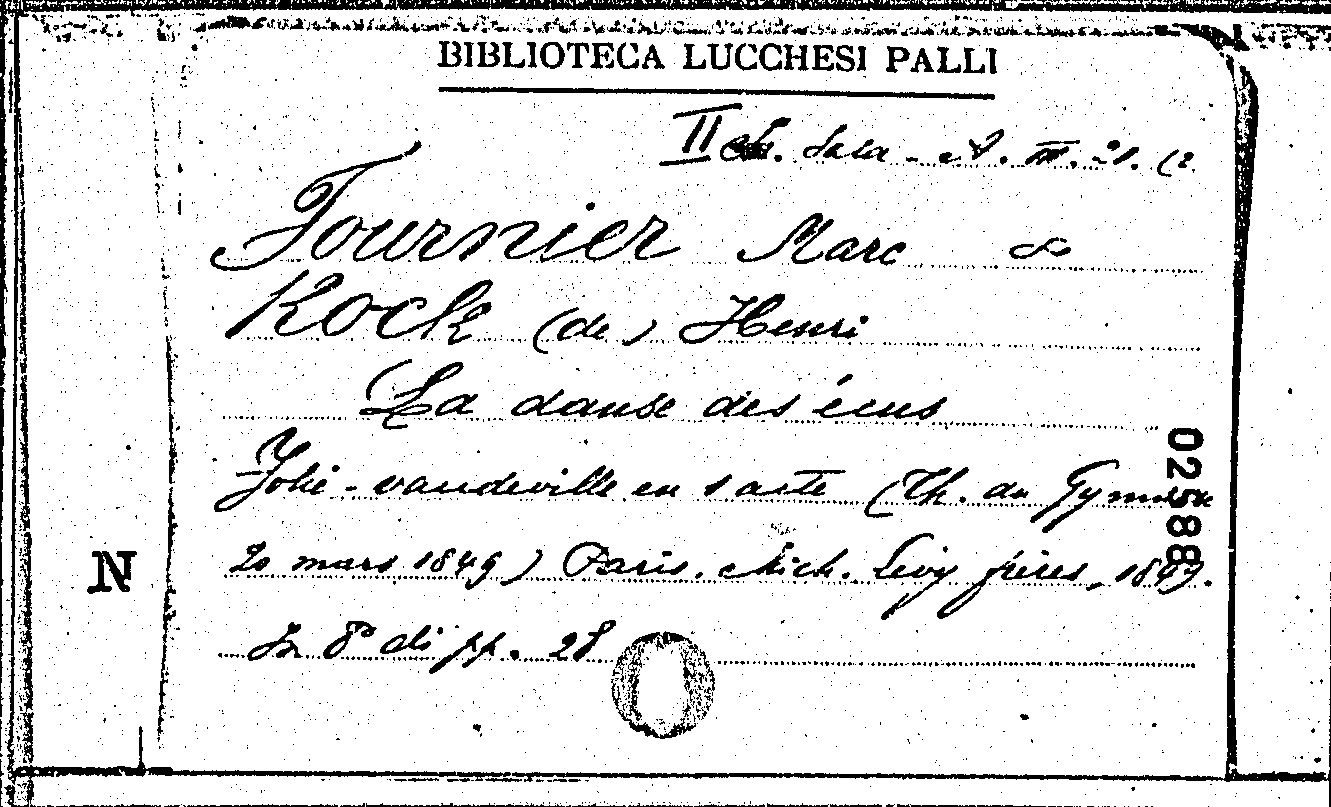 BIBLIOTECA LUCCHESI PALLI
II Sala - A. III. 21. (2.
Fournier Marc &
Kock (de) Henri
La danse des écus
Folie-vaudeville en 1 acte (Th. du Gymnase
20 mars 1849) Paris. Mich. Levy frères, 1849.
In 8° di pp. 28
N
02588